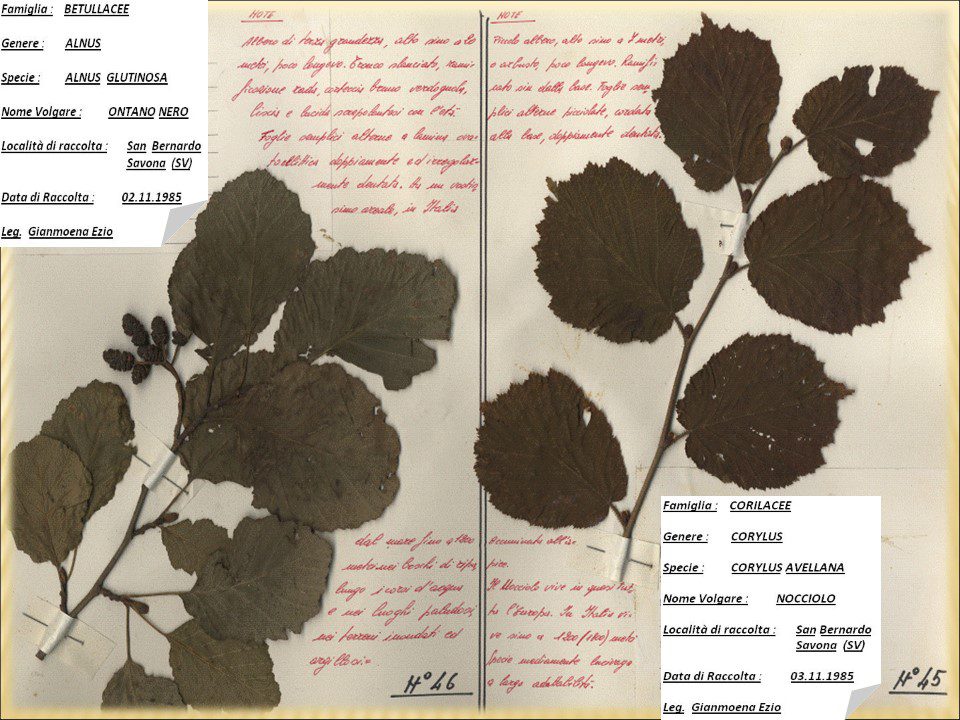 Famiglia : BETULLACEE
Genere : ALNUS
Specie : ALNUS GLUTINOSA
Nome Volgare : ONTANO NERO
Località di raccolta : San Bernardo
Savona (SV)
Data di Raccolta : 02.11.1985
Leg. Gianmoena Ezio
NOTE
Albero di terza grandezza, alto sino a 10
metri, poco longevo. Tronco slanciato, rami-
ficazione rada, corteccia bruno verdognola,
liscia e lucida screpolantesi con l'età.
Foglie semplici alterne a lamina ova-
toellittica doppiamente ed irregolar-
mente dentata. Ha un vastis
simo areale, in Italia
dal mare fino a 1200
metri nei boschi di ripa,
lungo i corsi d'acqua
e nei luoghi paludosi,
nei terreni inondati ed
argillosi=
N° 46
NOTE
Piccolo albero, alto sino a 7 metri,
o arbusto, poco longevo. Ramifi
cato sin dalla base. Foglie sem
plici alterne picciolate, cordate
alla base, doppiamente dentate.
Acuminata all'a=
pice.
Il Nocciolo vive in quasi tut=
ta l'Europa. In Italia vi=
ve sino a 1200 metri
Specie mediamente lucivaga
a larga adattabilità.
Famiglia : CORILACEE
Genere : CORYLUS
Specie : CORYLUS AVELLANA
Nome Volgare : NOCCIOLO
Località di raccolta : San Bernardo
Savona (SV)
Data di Raccolta : 03.11.1985
Leg. Gianmoena Ezio
N° 45